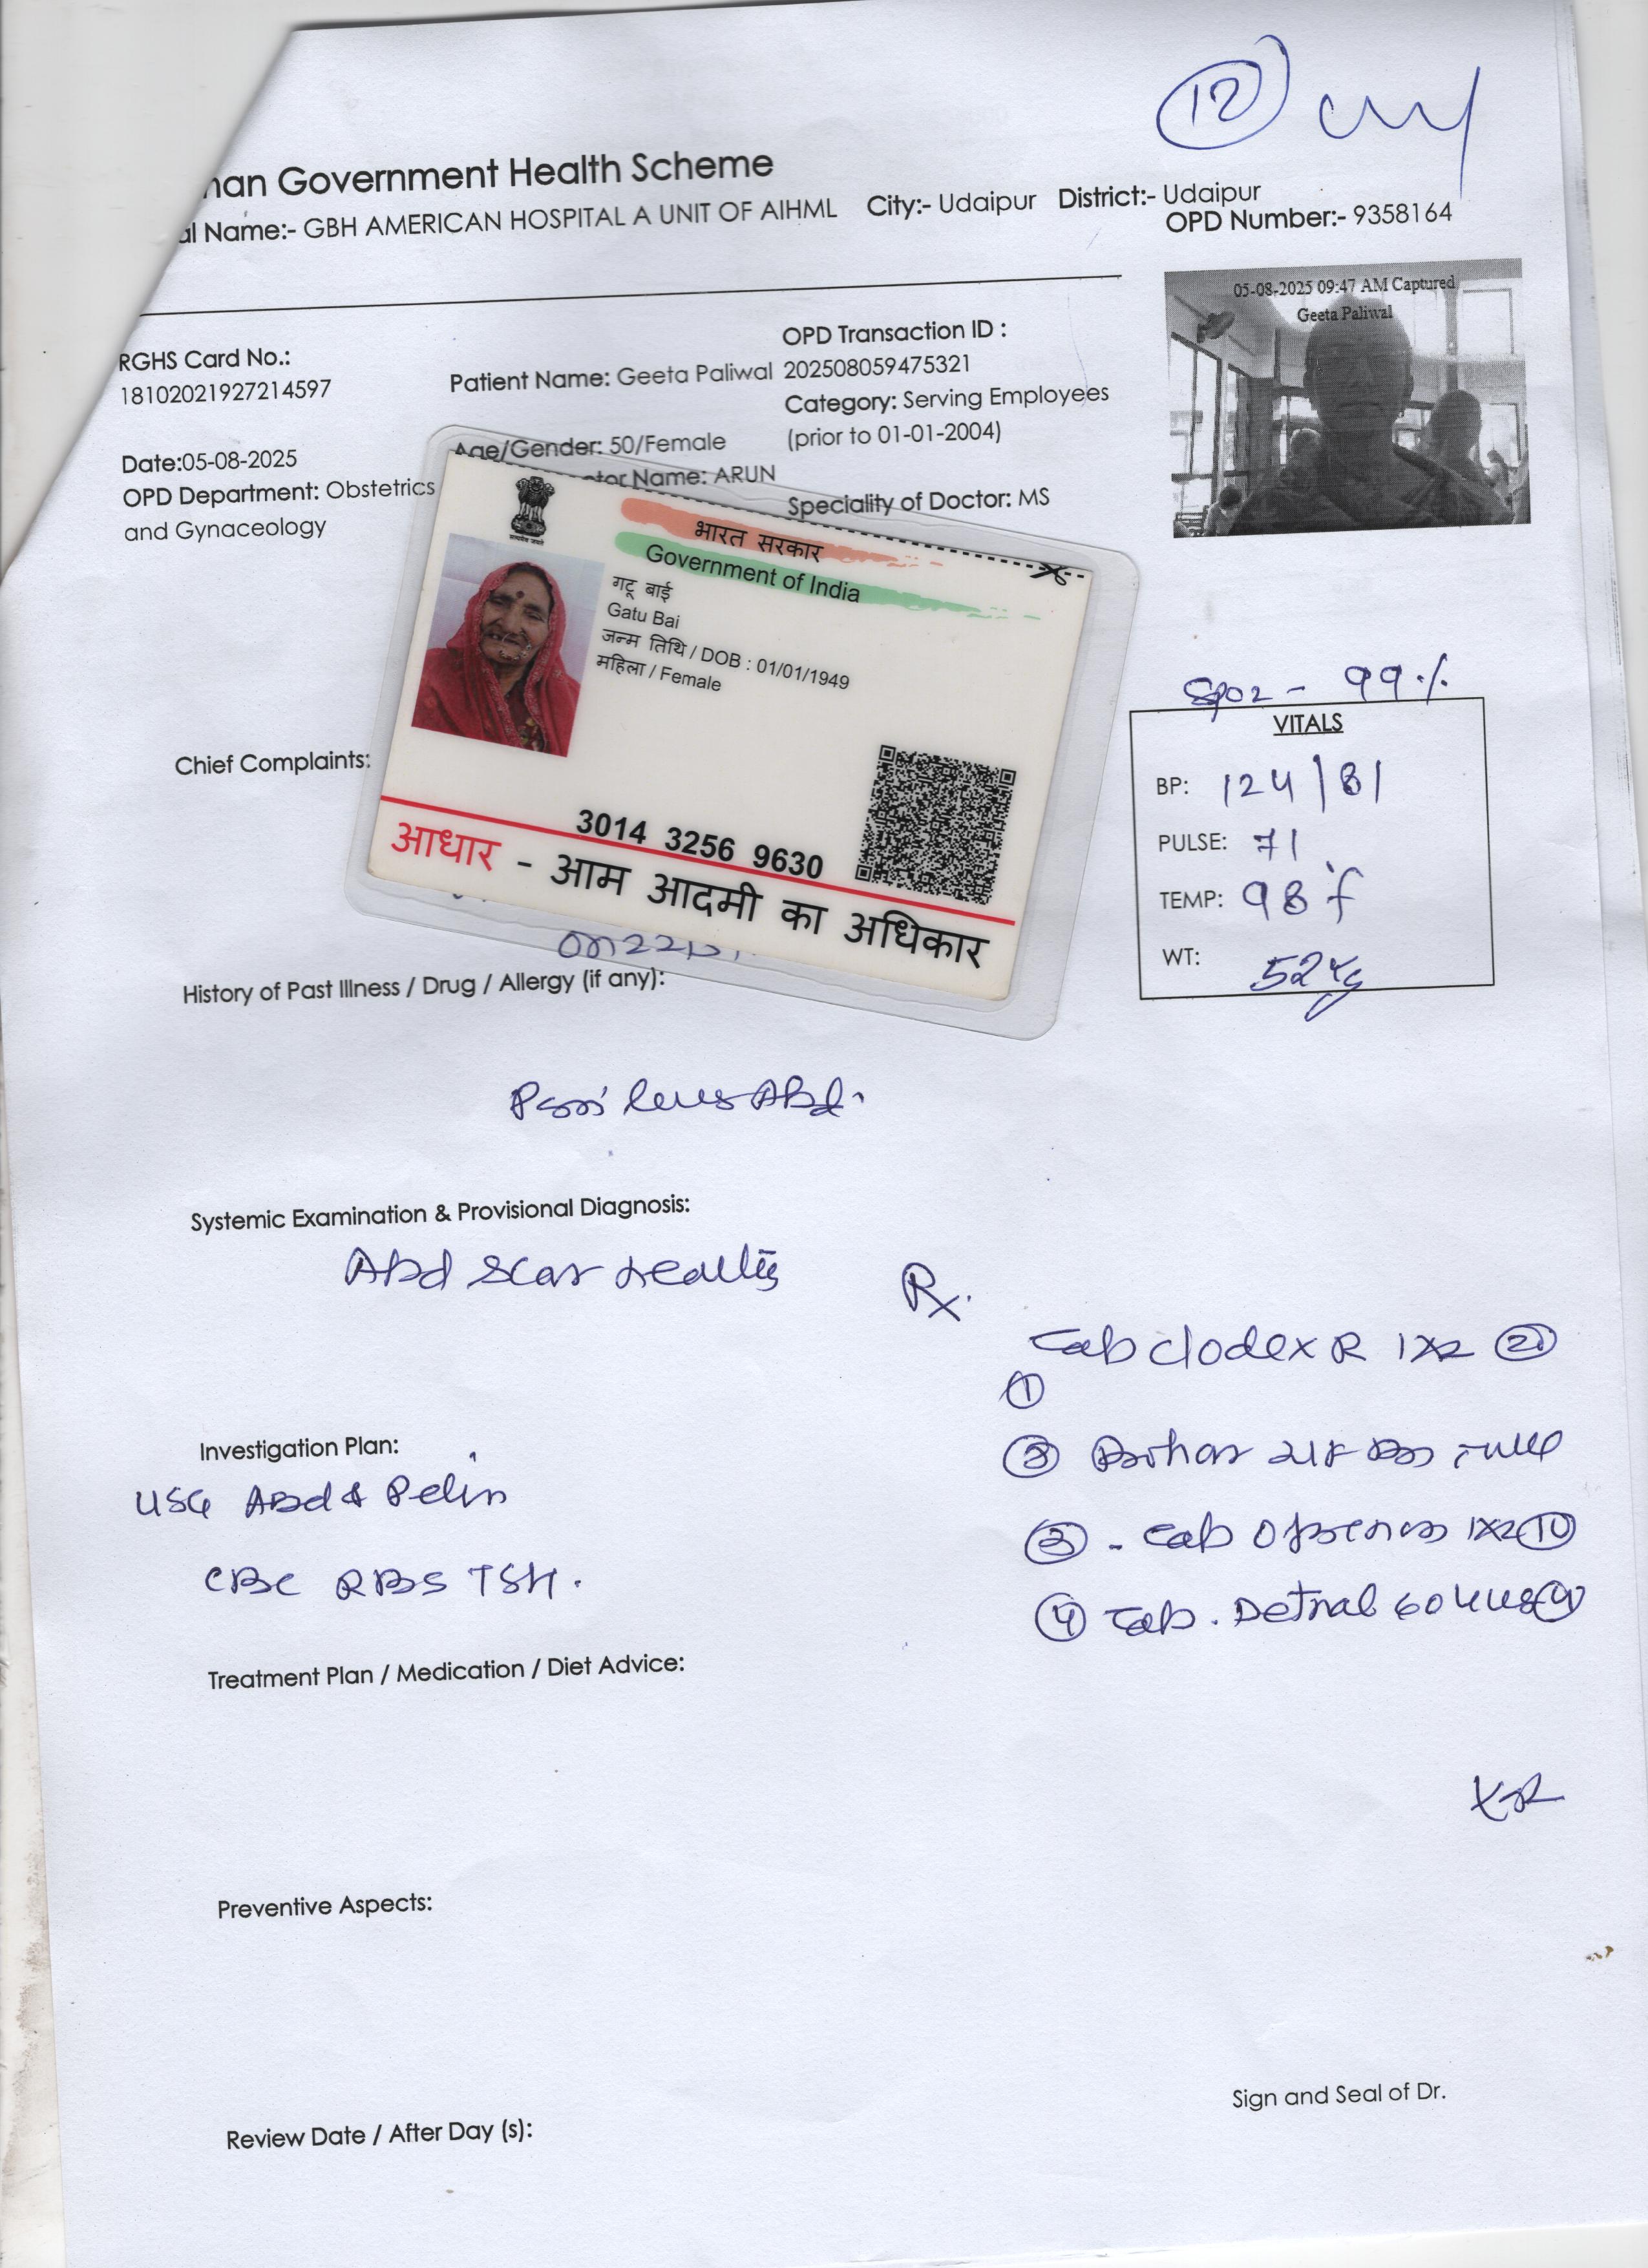 12
nan Government Health Scheme
al Name:- GBH AMERICAN HOSPITAL A UNIT OF AIHML City:- Udaipur District:- Udaipur
OPD Number:- 9358164
05-08-2025 09:47 AM Captured
Geeta Paliwal
RGHS Card No.:
18102021927214597
Patient Name: Geeta Paliwal
OPD Transaction ID :
202508059475321
Category: Serving Employees
(prior to 01-01-2004)
Date:05-08-2025
Age/Gender: 50/Female
OPD Department: Obstetrics
and Gynaceology
ctor Name: ARUN
Speciality of Doctor: MS
भारत सरकार
Government of India
गटू बाई
Gatu Bai
जन्म तिथि / DOB : 01/01/1949
महिला / Female
3014 3256 9630
आधार - आम आदमी का अधिकार
SpO2 - 99%
VITALS
BP: 124/81
PULSE: 71
TEMP: 98°f
WT: 52kg
Chief Complaints:
History of Past Illness / Drug / Allergy (if any):
Abd.
Systemic Examination & Provisional Diagnosis:
Abd Scar
Rx.
Tab clodex R 1x2
①
Investigation Plan:
USG Abd & Pelvis
CBC RBS TSH.
③ - Tab 1x2 10
④ Tab. Detnal 60
Treatment Plan / Medication / Diet Advice:
Preventive Aspects:
Sign and Seal of Dr.
Review Date / After Day (s):